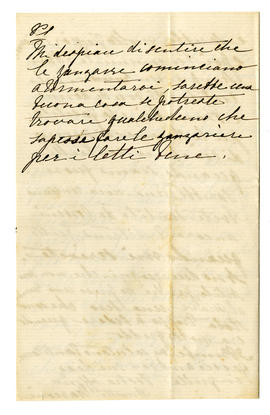 PS
Mi despiace di sentire che
le zanzare cominciano
a tormentarvi, sarebbe una
buona cosa se potreste
trovare qualcheduno che
sapesse fare le zanzariere
per i letti bene.